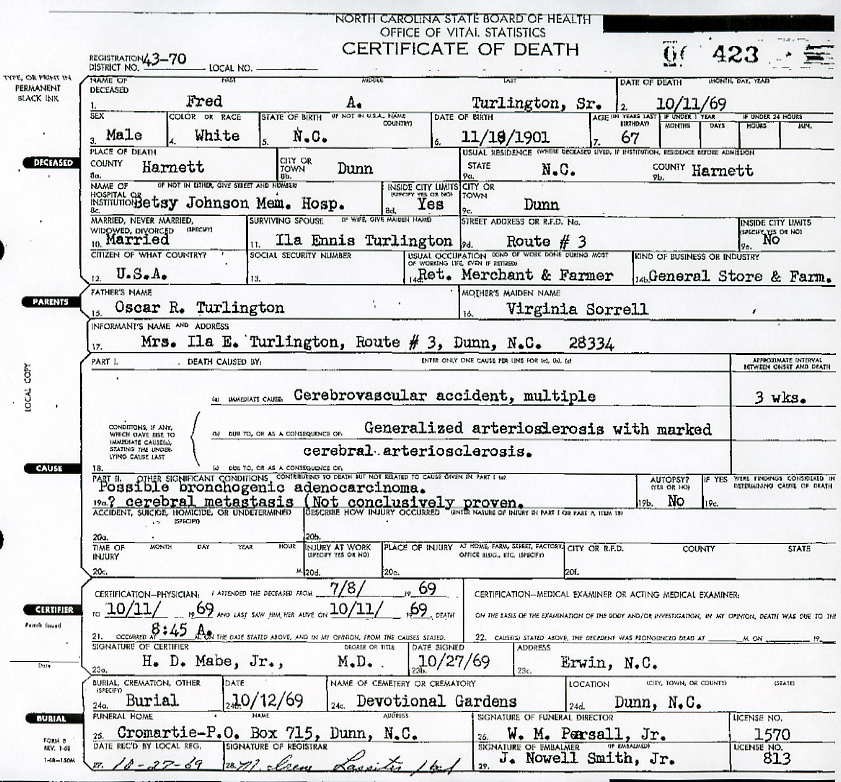 NORTH CAROLINA STATE BOARD OF HEALTH
OFFICE OF VITAL STATISTICS
CERTIFICATE OF DEATH
423
REGISTRATION DISTRICT NO. 43-70 LOCAL NO.
TYPE, OR PRINT IN PERMANENT BLACK INK
NAME OF DECEASED FIRST MIDDLE LAST DATE OF DEATH (MONTH, DAY, YEAR)
1. Fred A. Turlington, Sr. 2. 10/11/69
SEX COLOR OR RACE STATE OF BIRTH (IF NOT IN U.S.A., NAME COUNTRY) DATE OF BIRTH AGE (IN YEARS LAST BIRTHDAY) IF UNDER 1 YEAR MONTHS DAYS IF UNDER 24 HOURS HOURS MIN.
3. Male 4. White 5. N.C. 6. 11/18/1901 7. 67
DECEASED
PLACE OF DEATH USUAL RESIDENCE (WHERE DECEASED LIVED, IF INSTITUTION, RESIDENCE BEFORE ADMISSION
COUNTY Harnett CITY OR TOWN Dunn STATE N.C. COUNTY Harnett
8a. 8b. 9a. 9b.
NAME OF HOSPITAL OR INSTITUTION (IF NOT IN EITHER, GIVE STREET AND NUMBER) Betsy Johnson Mem. Hosp. INSIDE CITY LIMITS (SPECIFY YES OR NO) Yes CITY OR TOWN Dunn
8c. 8d. 9c.
MARRIED, NEVER MARRIED, WIDOWED, DIVORCED (SPECIFY) SURVIVING SPOUSE (IF WIFE, GIVE MAIDEN NAME) STREET ADDRESS OR R.F.D. No. INSIDE CITY LIMITS (SPECIFY YES OR NO)
10. Married 11. Ila Ennis Turlington 9d. Route # 3 9e. No
CITIZEN OF WHAT COUNTRY? SOCIAL SECURITY NUMBER USUAL OCCUPATION (KIND OF WORK DONE DURING MOST OF WORKING LIFE, EVEN IF RETIRED) KIND OF BUSINESS OR INDUSTRY
12. U.S.A. 13. 14a. Ret. Merchant & Farmer 14b. General Store & Farm.
PARENTS
FATHER'S NAME MOTHER'S MAIDEN NAME
15. Oscar R. Turlington 16. Virginia Sorrell
INFORMANT'S NAME AND ADDRESS
17. Mrs. Ila E. Turlington, Route # 3, Dunn, N.C. 28334
LOCAL COPY
PART I. DEATH CAUSED BY: ENTER ONLY ONE CAUSE PER LINE FOR (a), (b), (c) APPROXIMATE INTERVAL BETWEEN ONSET AND DEATH
(a) IMMEDIATE CAUSE: Cerebrovascular accident, multiple 3 wks.
CONDITIONS, IF ANY, WHICH GAVE RISE TO IMMEDIATE CAUSE(a), STATING THE UNDERLYING CAUSE LAST
(b) DUE TO, OR AS A CONSEQUENCE OF: Generalized arteriosclerosis with marked
cerebral arteriosclerosis.
18. (c) DUE TO, OR AS A CONSEQUENCE OF:
CAUSE
PART II. OTHER SIGNIFICANT CONDITIONS CONTRIBUTING TO DEATH BUT NOT RELATED TO CAUSE GIVEN IN PART I (a) AUTOPSY? (YES OR NO) IF YES WERE FINDINGS CONSIDERED IN DETERMINING CAUSE OF DEATH
Possible bronchogenic adenocarcinoma.
19a. ? cerebral metastasis (Not conclusively proven. 19b. No 19c.
ACCIDENT, SUICIDE, HOMICIDE, OR UNDETERMINED (SPECIFY) DESCRIBE HOW INJURY OCCURRED (ENTER NATURE OF INJURY IN PART I OR PART II, ITEM 18)
20a. 20b.
TIME OF INJURY MONTH DAY YEAR HOUR INJURY AT WORK (SPECIFY YES OR NO) PLACE OF INJURY AT HOME, FARM, STREET, FACTORY, OFFICE BLDG., ETC. (SPECIFY) CITY OR R.F.D. COUNTY STATE
20c. M. 20d. 20e. 20f.
CERTIFICATION—PHYSICIAN: I ATTENDED THE DECEASED FROM 7/8/ 19 69 CERTIFICATION—MEDICAL EXAMINER OR ACTING MEDICAL EXAMINER:
CERTIFIER
TO 10/11/ 1969 AND LAST SAW HIM, HER ALIVE ON 10/11/ 1969. DEATH ON THE BASIS OF THE EXAMINATION OF THE BODY AND/OR INVESTIGATION, IN MY OPINION, DEATH WAS DUE TO THE
21. OCCURRED AT 8:45 A. M. ON THE DATE STATED ABOVE, AND IN MY OPINION, FROM THE CAUSES STATED. 22. CAUSE(S) STATED ABOVE, THE DECEDENT WAS PRONOUNCED DEAD AT M ON 19
Permit Issued
Date
SIGNATURE OF CERTIFIER DEGREE OR TITLE DATE SIGNED ADDRESS
23a. H. D. Mabe, Jr., M.D. 23b. 10/27/69 23c. Erwin, N.C.
BURIAL, CREMATION, OTHER (SPECIFY) DATE NAME OF CEMETERY OR CREMATORY LOCATION (CITY, TOWN, OR COUNTY) (STATE)
24a. Burial 24b. 10/12/69 24c. Devotional Gardens 24d. Dunn, N.C.
BURIAL
FUNERAL HOME NAME ADDRESS SIGNATURE OF FUNERAL DIRECTOR LICENSE NO.
25. Cromartie-P.O. Box 715, Dunn, N.C. 26. W. M. Pearsall, Jr. 1570
FORM 8
REV. 1-68
1-68-150M
DATE REC'D BY LOCAL REG. SIGNATURE OF REGISTRAR SIGNATURE OF EMBALMER (IF EMBALMED) LICENSE NO.
27. 10-27-69 28. 29. J. Nowell Smith, Jr. 813